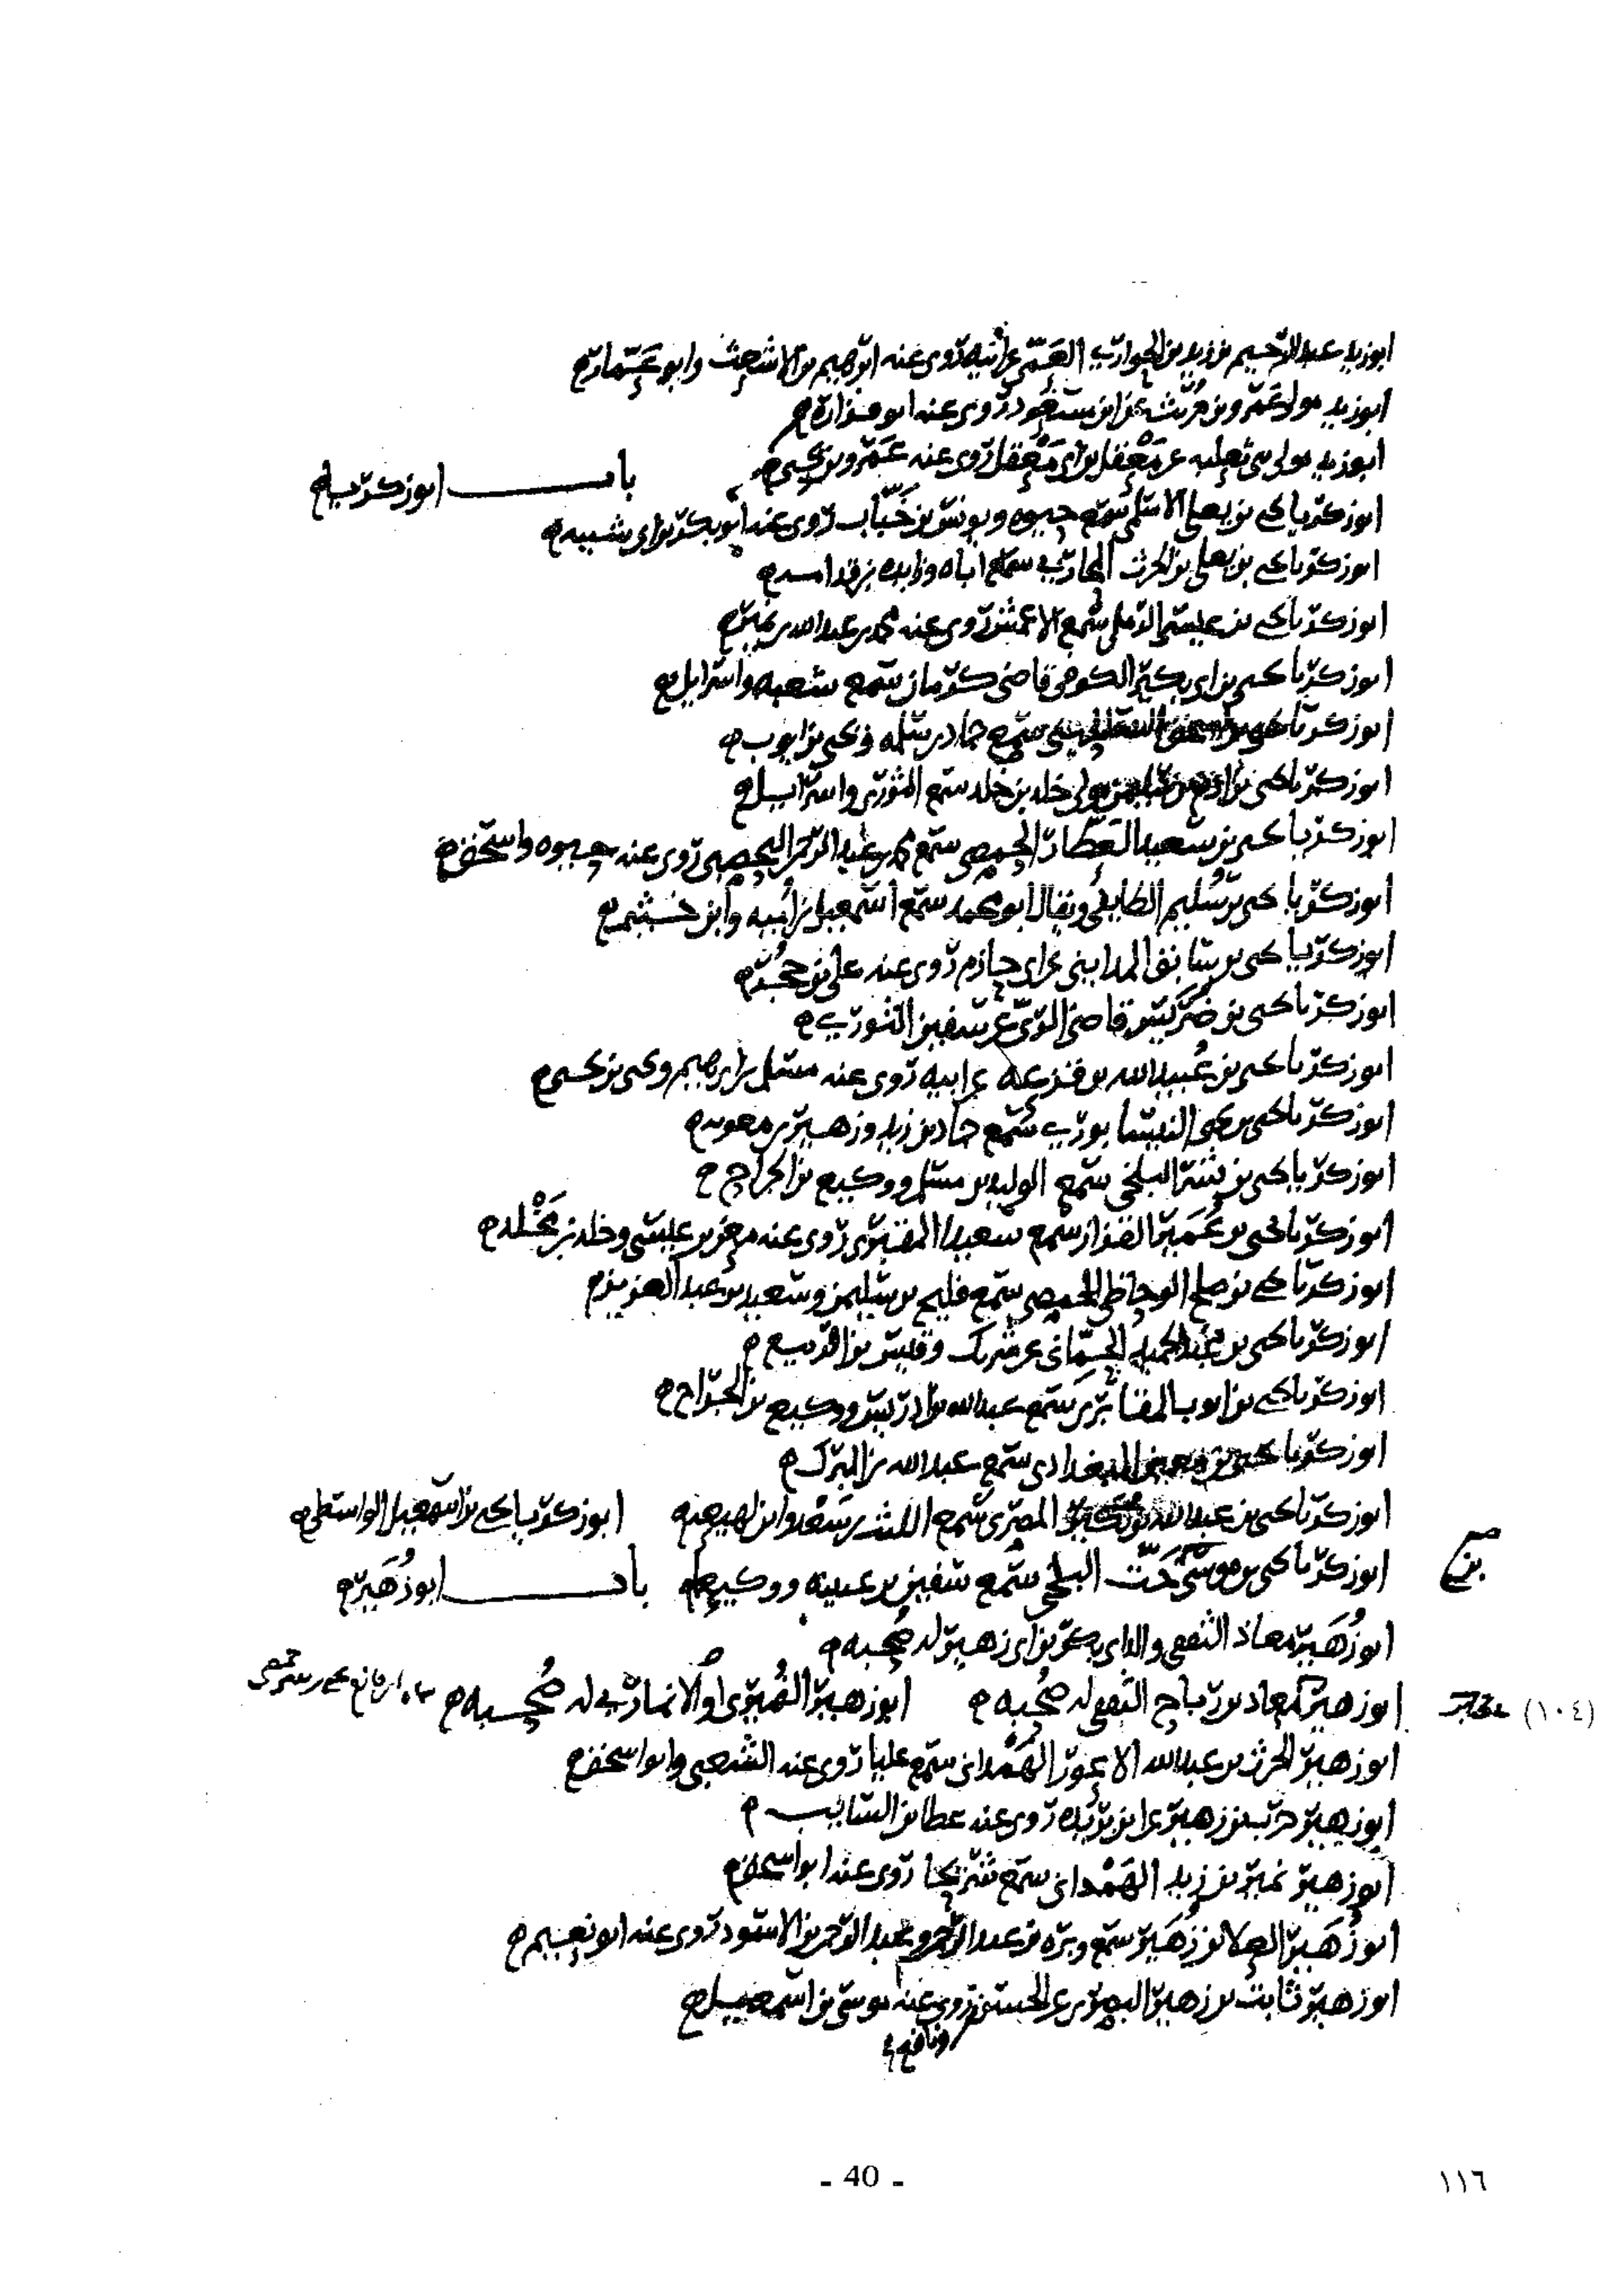 ابو زيد عبد الرحيم بن زيد بن الحواري العمي عن ابيه روى عنه ابرهيم بن الاشعث وابو عمار
ابو زيد مولى عمرو بن حريث عن ابن مسعود روى عنه ابو فزارة
ابو زيد مولى بني ثعلبه عن معقل بن ابي معقل روى عنه عمرو بن يحيى
باب ابو زكريا
ابو زكريا يحيى بن يعلى الاسلمي سمع حيوه ويونس بن خباب روى عنه ابو بكر بن ابي شيبه
ابو زكريا يحيى بن يعلى بن الحرث المحاربي سمع اباه وزايده بن قدامه
ابو زكريا يحيى بن عيسى الرملي سمع الاعمش روى عنه محمد بن عبد الله بن نمير
ابو زكريا يحيى بن ابي بكير الكوفي قاضي كرمان سمع شعبه واسرايل
ابو زكريا يحيى بن اسحق السيلحيني سمع حماد بن سلمه ويحيى بن ايوب
ابو زكريا يحيى بن ادم بن سليمن مولى خلد بن خلد سمع الثوري واسرايل
ابو زكريا يحيى بن سعيد العطار الحمصي سمع محمد بن عبد الرحمن اليحصبي روى عنه حيوه واسحق
ابو زكريا يحيى بن سليم الطايفي ويقال ابو محمد سمع اسمعيل بن اميه وابن خثيم
ابو زكريا يحيى بن سابق المدايني عن ابي حازم روى عنه علي بن حجر
ابو زكريا يحيى بن ضريس قاضي الري عن سفين الثوري
ابو زكريا يحيى بن عبيد الله بن قزعه عن ابيه روى عنه مسلم بن ابرهيم ويحيى بن يحيى
ابو زكريا يحيى بن يحيى النيسابوري سمع حماد بن زيد وزهير بن معويه
ابو زكريا يحيى بن بشر البلخي سمع الوليد بن مسلم ووكيع بن الجراح
ابو زكريا يحيى بن عمير القزاز سمع سعيدا المقبري روى عنه معن بن عيسى وخلد بن مخلد
ابو زكريا يحيى بن صلح الوحاظي الحمصي سمع فليح بن سليمن وسعيد بن عبد العزيز
ابو زكريا يحيى بن عبد الحميد الحماني عن شريك وقيس بن الربيع
ابو زكريا يحيى بن ايوب المقابري سمع عبد الله بن ادريس ووكيع بن الجراح
ابو زكريا يحيى بن معين البغدادي سمع عبد الله بن المبرك
ابو زكريا يحيى بن عبد الله بن بكير المصري سمع الليث بن سعد وابن لهيعه ابو زكريا يحيى بن اسمعيل الواسطي
ابو زكريا يحيى بن موسى خت البلخي سمع سفين بن عيينه ووكيع باب ابو زهير
بن
ابو زهير معاذ الثقفي والد ابي بكر بن ابي زهير له صحبه
ابو زهير معاذ بن رباح الثقفي له صحبه ابو زهير النميري او الانماري له صحبه
(١٠٤)
ابو زهير الحرث بن عبد الله الاعور الهمداني سمع عليا روى عنه الشعبي وابو اسحق
ابو زهير حرب بن زهير عن ابن بريده روى عنه عطا بن السايب
ابو زهير نمير بن زيد الهمداني سمع شريحا روى عنه ابو اسحق
ابو زهير العلا بن زهير سمع وبره بن عبد الرحمن وعبد الرحمن بن الاسود روى عنه ابو نعيم
ابو زهير ثابت بن زهير البصري عن الحسن روى عنه موسى بن اسمعيل
ونافع
- 40 -
١١٦